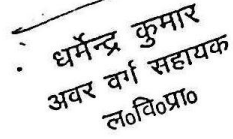 धर्मेन्द्र कुमार
अवर वर्ग सहायक
ल०वि०प्रा०